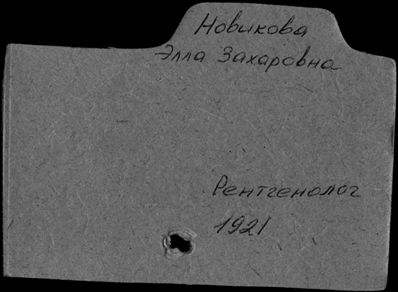 Новикова
Элла Захаровна
Рентгенолог
1921